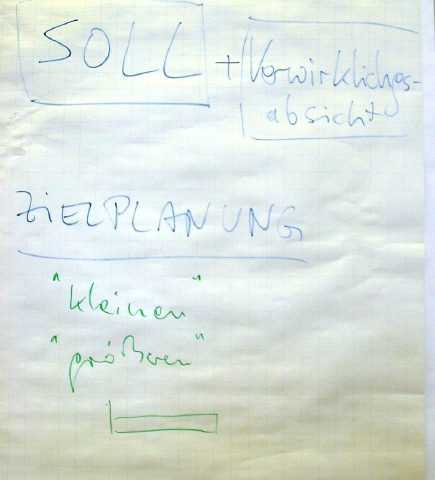 SOLL + Verwirklichgs-
absicht
ZIELPLANUNG
"kleinen"
"größeren"